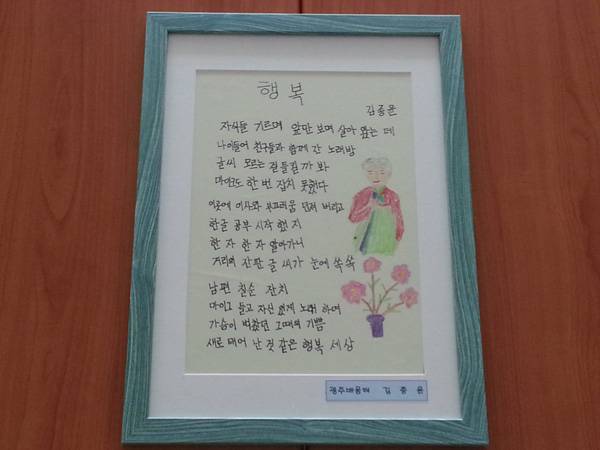 행복
김종윤
자식들 기르며 앞만 보며 살아 왔는데
나이들어 친구들과 함께 간 노래방
글씨 모르는 걸 들킬까 봐
마이크도 한 번 잡지 못했다
이곳에 이사와 부끄러움 던져 버리고
한글 공부 시작 했지
한 자 한 자 알아가니
거리의 간판 글씨가 눈에 쏙쏙
남편 칠순 잔치
마이크 들고 자신 있게 노래 하며
가슴이 벅찼던 그때의 기쁨
새로 태어 난 것 같은 행복 세상
광주배움터 김종윤